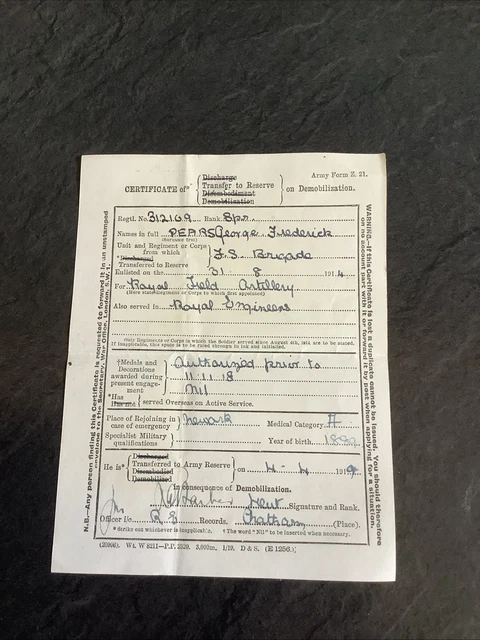 Army Form Z. 21.
Discharge
CERTIFICATE of* Transfer to Reserve on Demobilization.
Disembodiment
Demobilization
Regtl. No. 312169 Rank Spr.
Names in full PEARS George Frederick
(Surname first)
Unit and Regiment or Corps
from which F.S. Brigade
*Discharged
Transferred to Reserve
Enlisted on the 31 8 1914
For Royal Field Artillery.
(Here state Regiment or Corps to which first appointed)
Also served in Royal Engineers
Only Regiments or Corps in which the Soldier served since August 4th, 1914 are to be stated.
If inapplicable, this space is to be ruled through in ink and initialled.
†Medals and Authorized prior to
Decorations 11.11.18
awarded during
present engage- Nil
ment
*Has
Has not served Overseas on Active Service.
Place of Rejoining in Newark Medical Category A
case of emergency
Specialist Military Year of birth
qualifications
Discharged
He is* Transferred to Army Reserve on 4-4 1919
Disembodied
Demobilized
in consequence of Demobilization.
Lieut Signature and Rank.
Officer i/c R.E Records. Chatham (Place).
*Strike out whichever is inapplicable. † The word "Nil" to be inserted when necessary.
(20996). Wt. W 8211—P.P. 2329. 3,000m. 1/19. D & S. (E 1256.)
N.B.—Any person finding this Certificate is requested to forward it in an unstamped
envelope to the Secretary, War Office, London, S.W. 1.
WARNING.—If this Certificate is lost a duplicate cannot be issued. You should therefore
on no account part with it or forward it by post when applying for a situation.